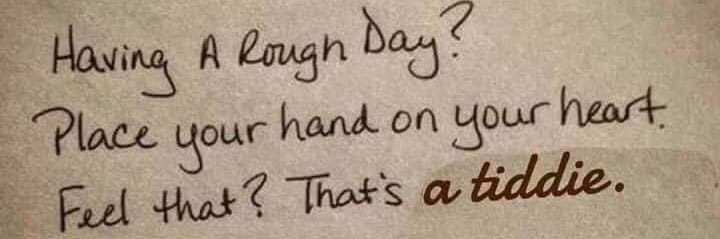 Having A Rough Day?
Place your hand on your heart.
Feel that? That's a tiddie.